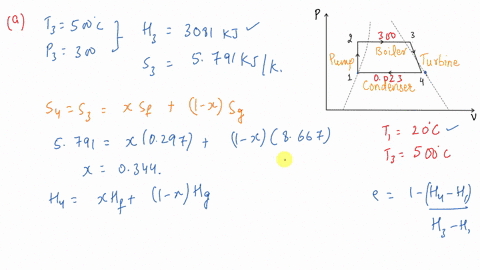 (a) T3 = 500°C
P3 = 300
H3 = 3081 KJ ✓
S3 = 5.791 KJ/K.
S4 = S3 = x Sf + (1-x) Sg
5.791 = x(0.297) + (1-x)(8.667)
x = 0.344.
H4 = xHf + (1-x) Hg
P
2 300 3
Boiler
Pump
Turbine
1 0.023 4
Condenser
V
T1 = 20°C ✓
T3 = 500°C
e = 1 - (H4 - H1)
H3 - H1